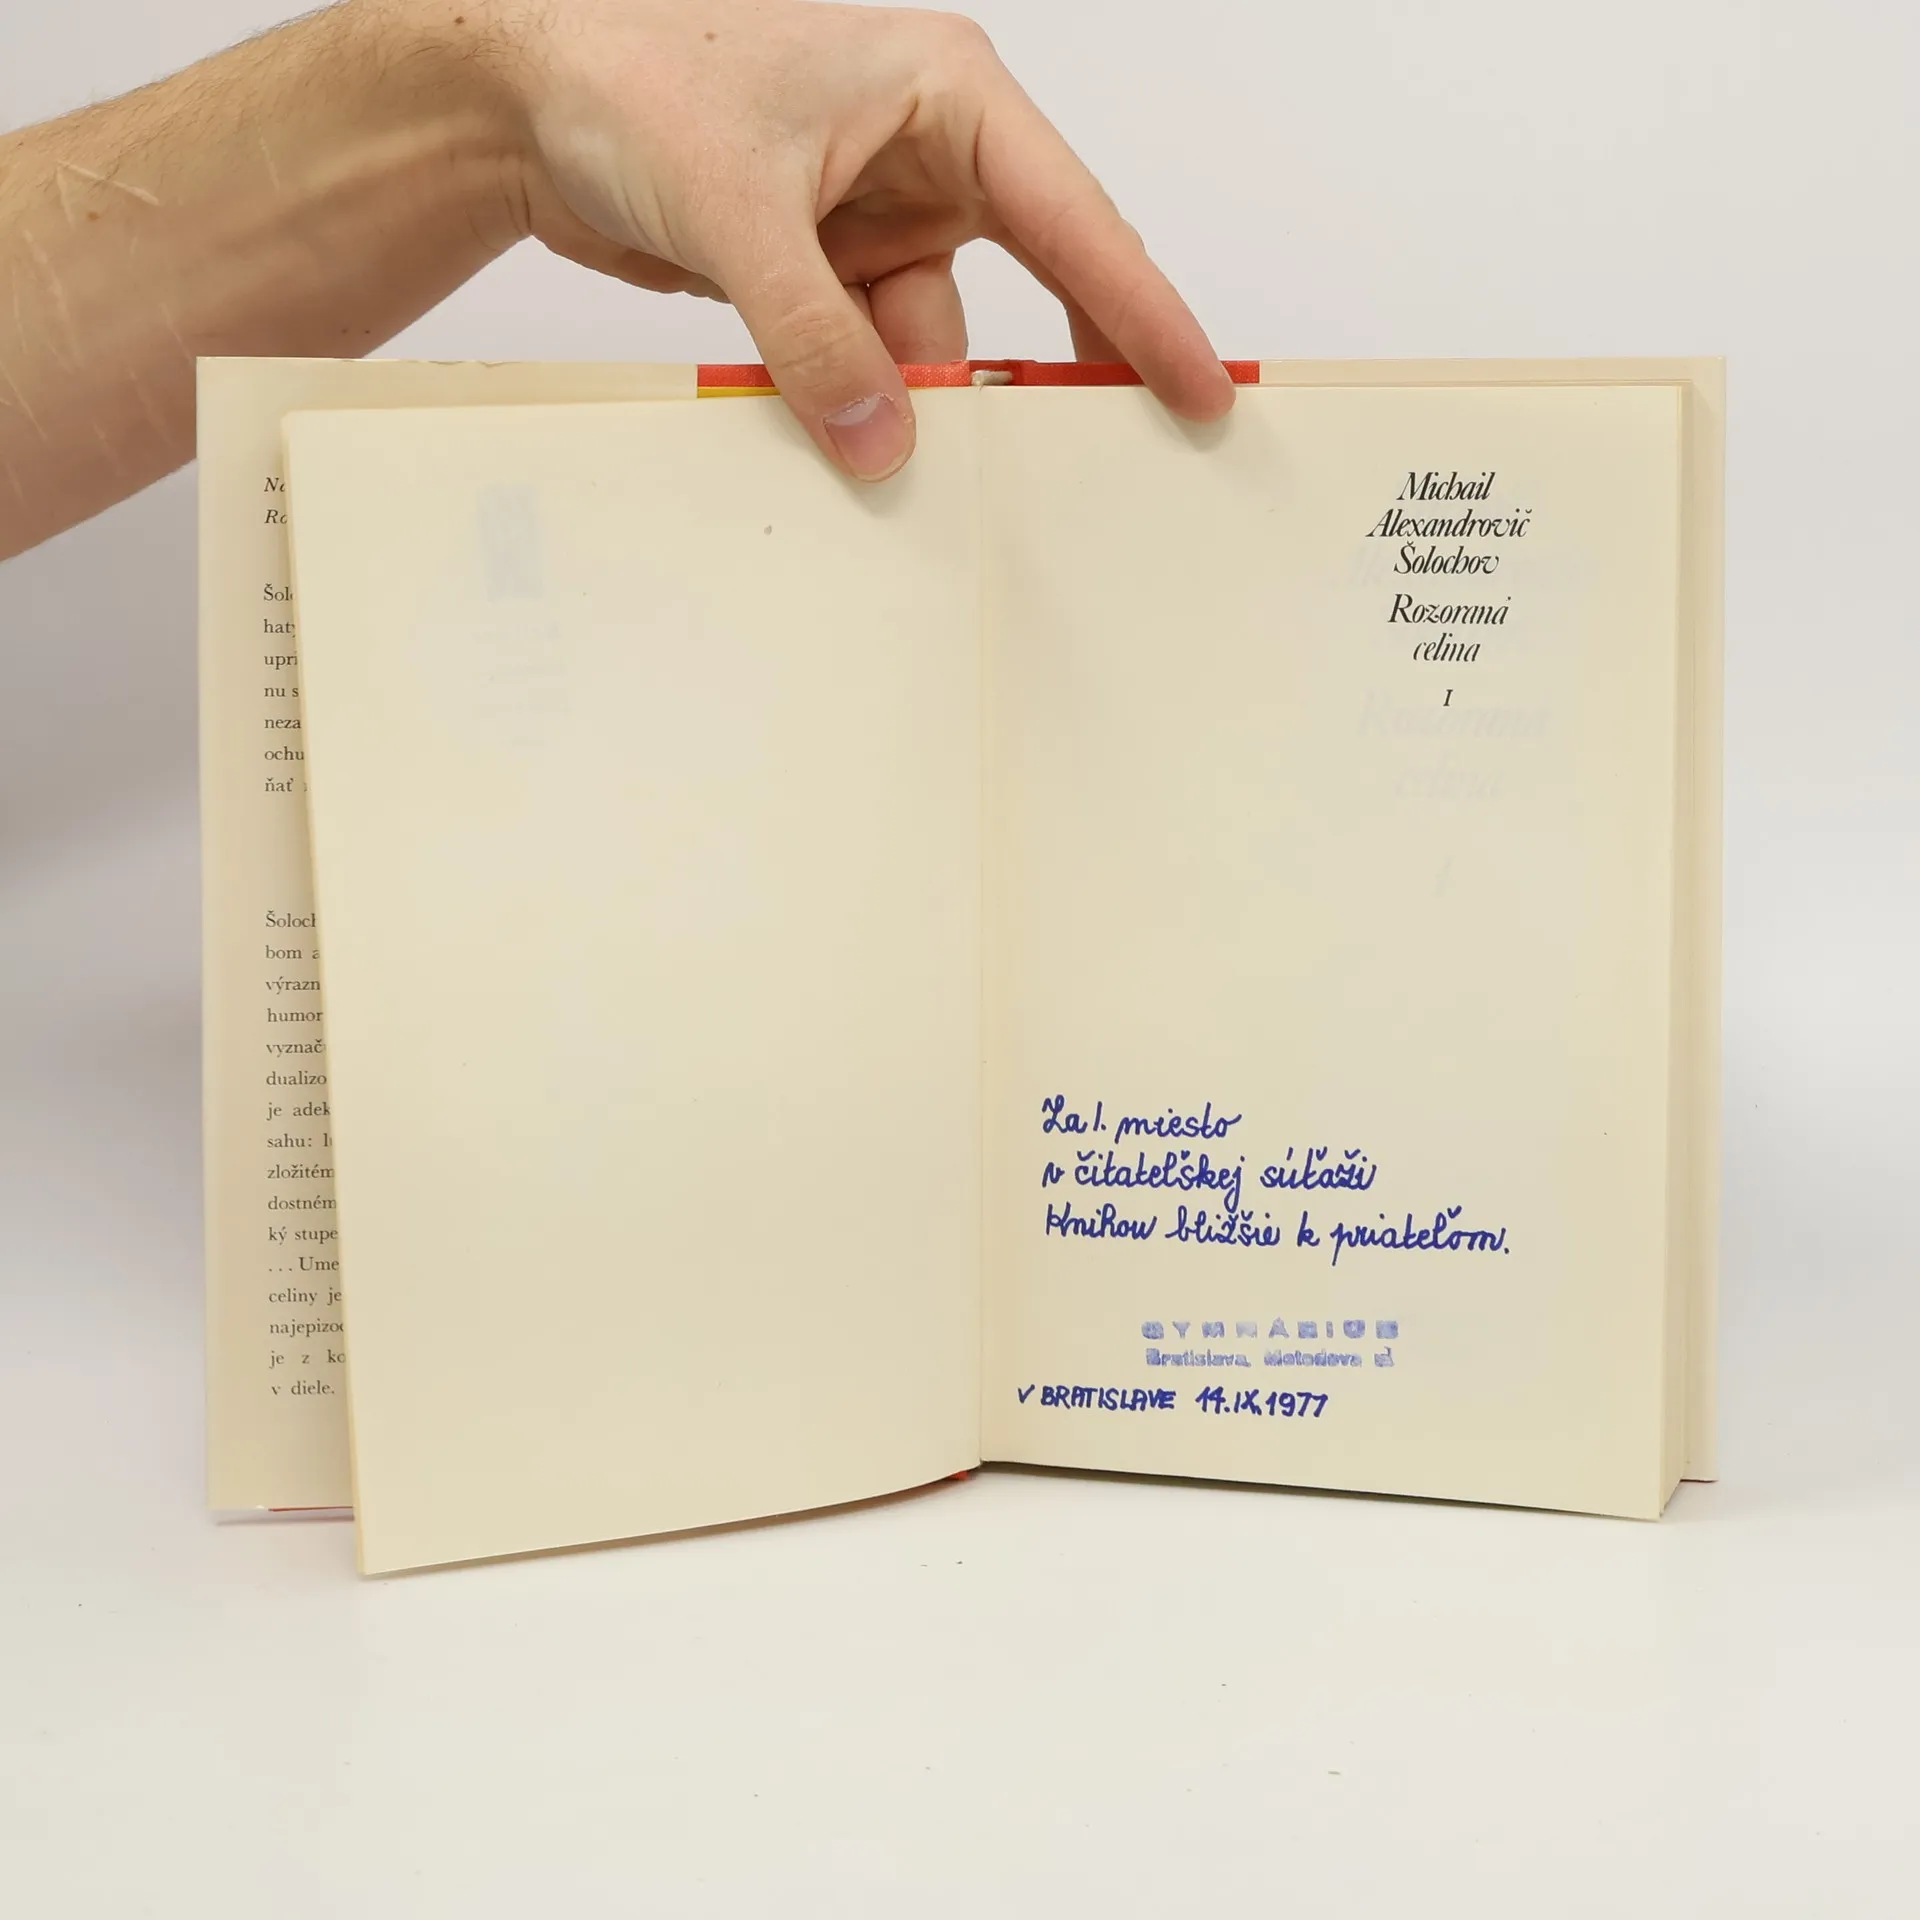 Šolo
haty
upri
nu s
neza
ochu
ňať
Šoloch
bom a
výrazn
humor
vyznač
dualizo
je adek
sahu:
zložitém
dostném
ký stupe
... Ume
celiny je
najepizo
je z ko
v diele.
Michail
Alexandrovič
Šolochov
Rozoraná
celina
I
Za 1. miesto
v čitateľskej súťaži
Knihou bližšie k priateľom.
GYMNÁZIUM
Bratislava, Metodova
V BRATISLAVE 14.IX.1977